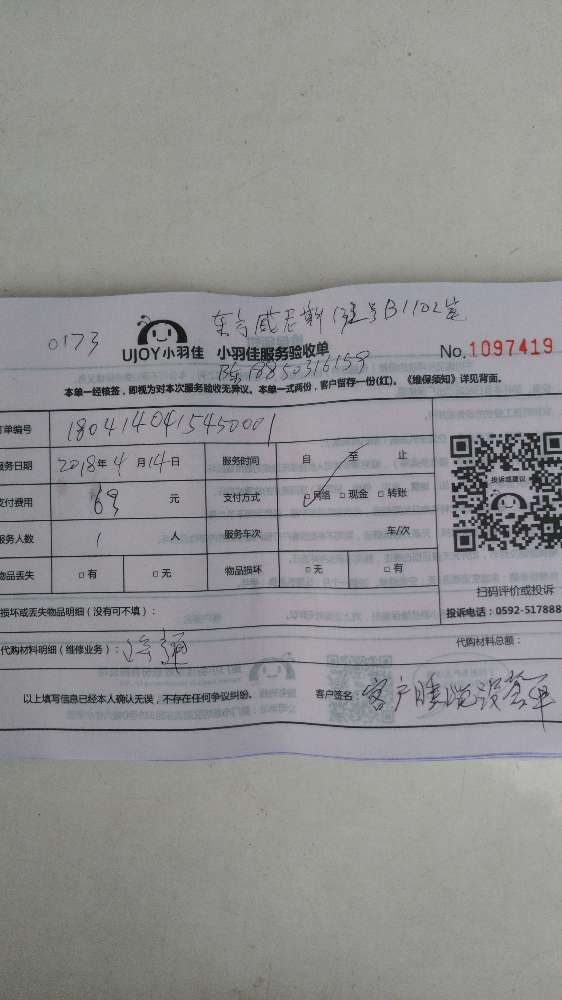 东方威尼斯 B1102室
0173
UJOY小羽佳 小羽佳服务验收单
No.1097419
陈18850316159
本单一经核签,即视为对本次服务验收无异议。本单一式两份,客户留存一份(红)。《维保须知》详见背面。
订单编号 1804140415450001
服务日期 2018年4月14日 服务时间 自 至 止
支付费用 69 元 支付方式 □网络 □现金 □转账
服务人数 1 人 服务车次 车/次
物品丢失 □有 □无 物品损坏 □无 □有
投诉或建议
扫码评价或投诉
投诉电话:0592-517888
损坏或丢失物品明细(没有可不填):
代购材料明细(维修业务): 通 代购材料总额:
以上填写信息已经本人确认无误,不存在任何争议纠纷。 客户签名: 客户睡觉没签单